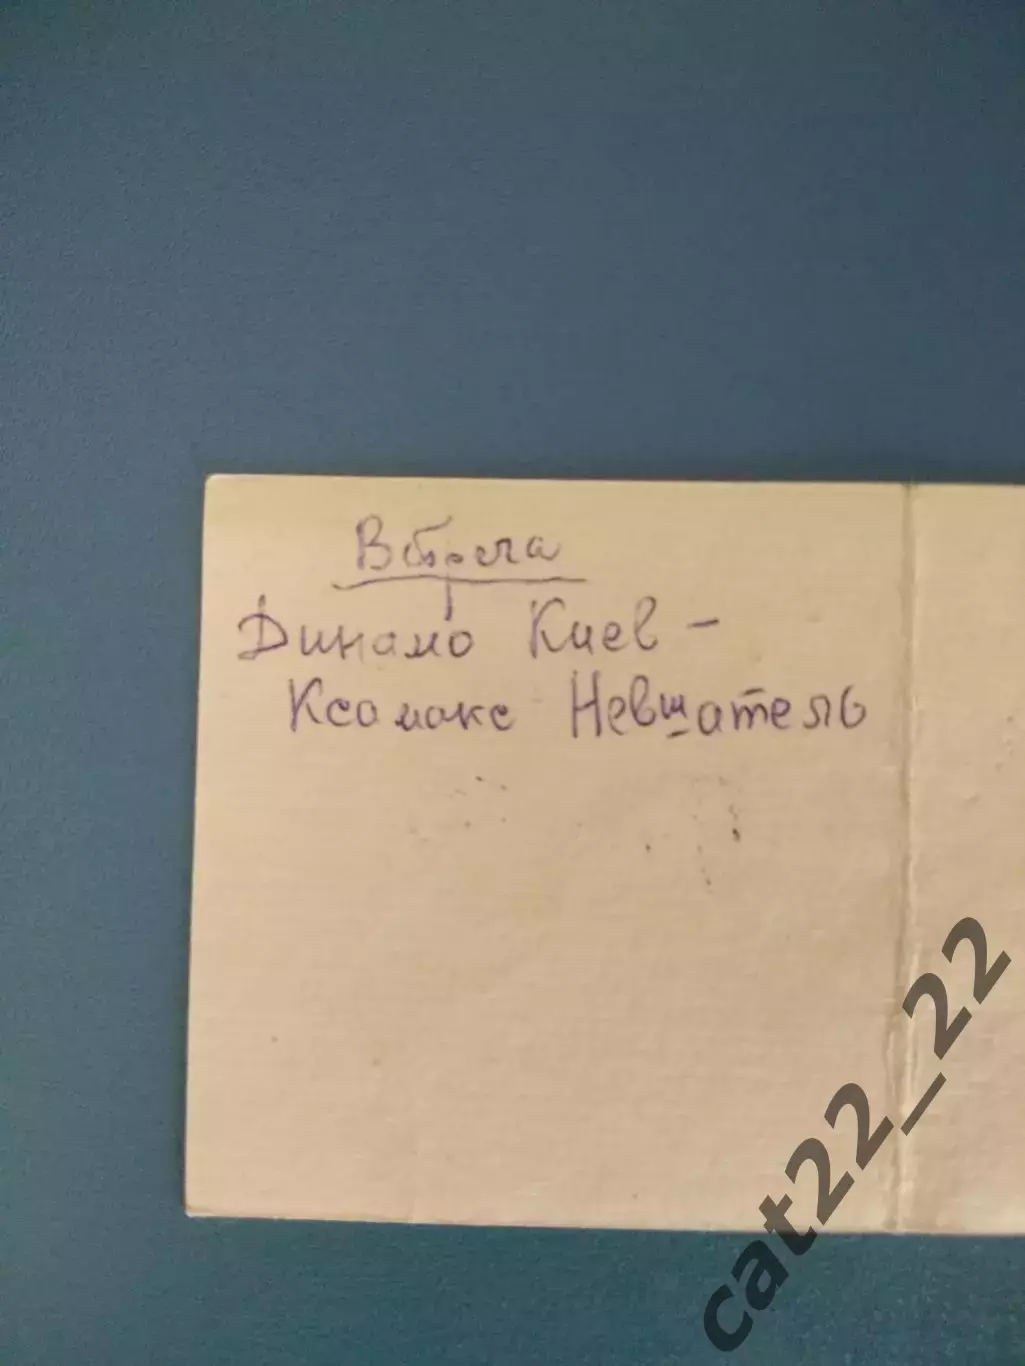 Встреча
Динамо Киев -
Ксамакс Невшатель
cat22_22